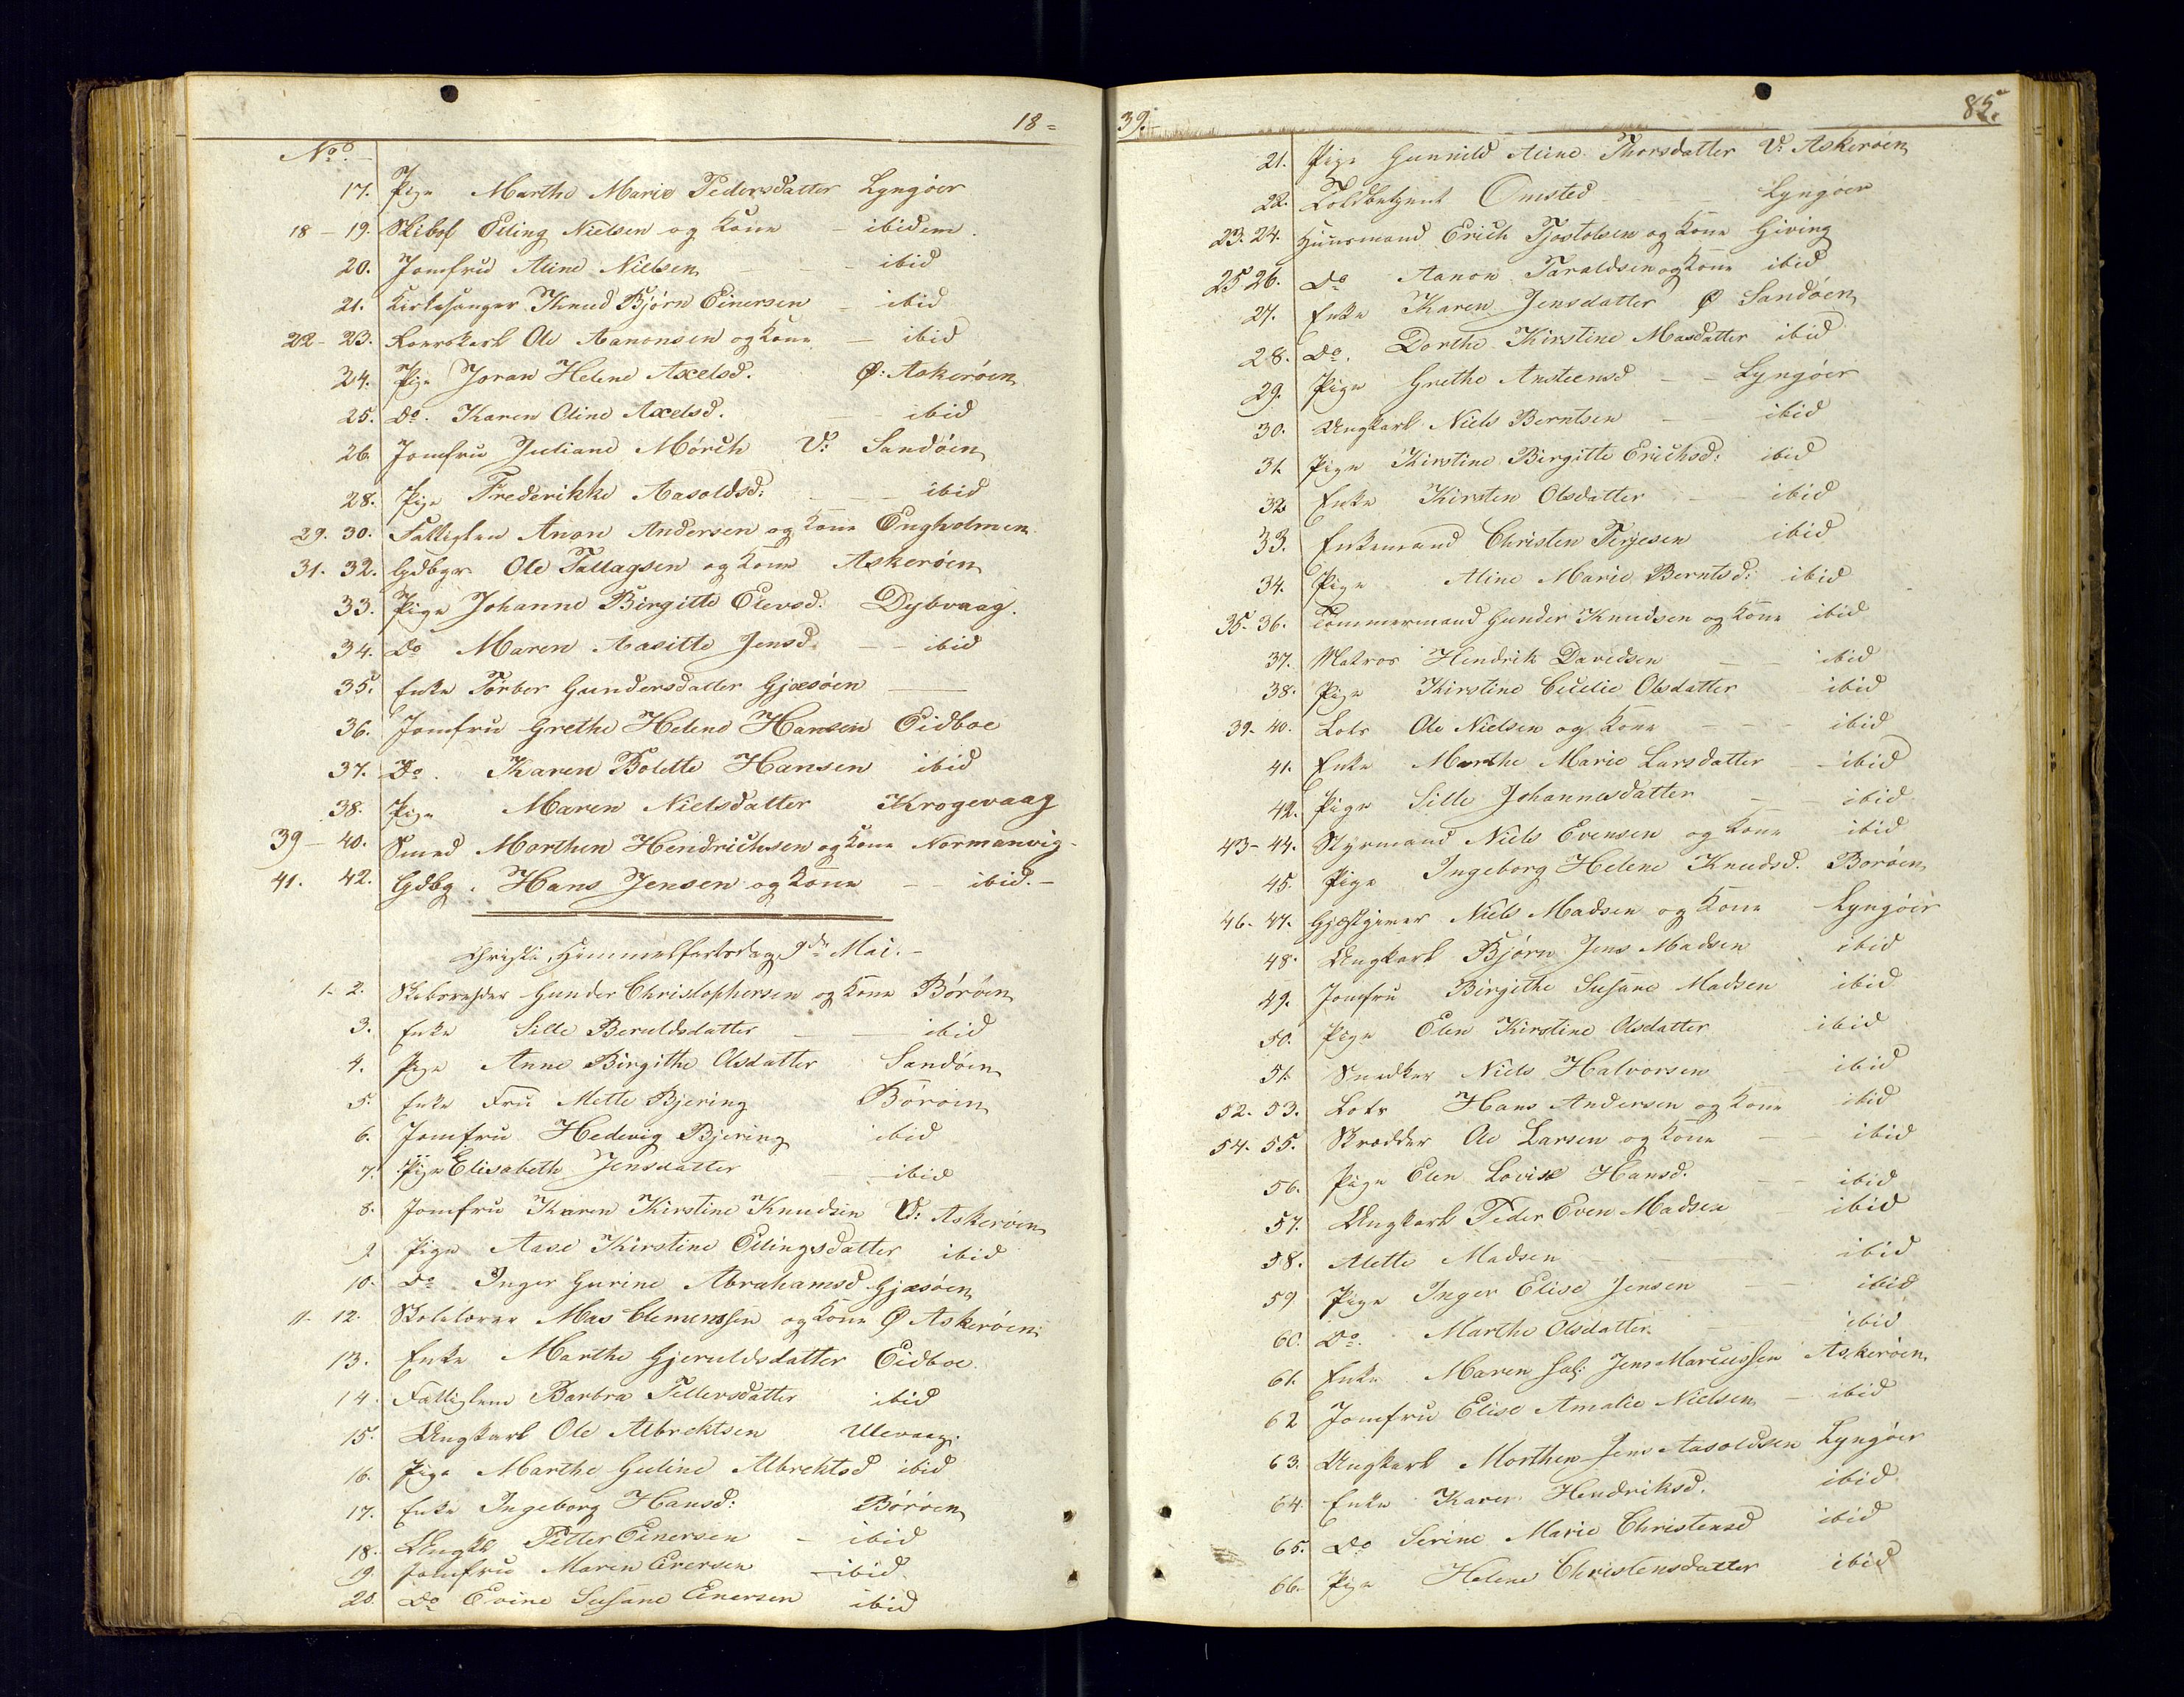 18=
No.
17. Pige Marthe Marie Pedersdatter Lyngöer
18 - 19. Skibsf Eiling Nielsen og Kone - ibidem.
20. Jomfru Aline Nielsen - - ibid
21. Kirkesanger Knud Bjørn Einersen - ibid
22 - 23. Ole Aanonsen og Kone - ibid
24. Pige Joran Helene Axelsd. Ø: Askeröen
25. Do. Karen Oline Axelsd. - ibid
26. Jomfru Juliane Mörch V: Sandöen
28. Pige Frederikke Aasoldsd: - - ibid
29. 30. Fattiglem Anon Andersen og Kone Engholmen
31. 32. Gdbgr. Ole Tallagsen og Kone Askeröen
33. Pige Johanne Birgitte Elevsd. Dybvaag.
34. Do Maren Aasitte Jensd. - - ibid
35. Enke Torber Gundersdatter Gjæsöen
36. Jomfru Grethe Helene Hansen Eidboe
37. Do. Karen Bolette Hansen ibid
38. Pige Maren Nielsdatter Krogevaag
39 - 40. Smed Morthen Hendrichsen og Kone Normanvig
41. 42. Gdbg. Hans Jensen og Kone - - ibid. -
Christi Himmelfartsdag 9de Mai. -
1. 2. Skibsreder Gunder Christophersen og Kone Böröen
3. Enke Sille Beruldsdatter - - ibid
4. Pige Anne Birgithe Olsdatter Sandöen
5. Enke Fru Mette Bjering Böröen
6. Jomfru Hedevig Bjering ibid
7. Pige Elisabeth Jensdatter - ibid
8. Jomfru Karen Kirstine Knudsen V: Askeröen
9. Pige Aase Kirstine Eilingsdatter ibid
10. Do Inger Gurine Abrahamsd. Gjæsöen
11 - 12. Skolelærer Mas Clemenssen og Kone Ø Askeröen
13. Enke Marthe Gjeruldsdatter Eidboe
14. Fattiglem Barbra Tellersdatter ibid
15. Ungkarl Ole Albrektsen Ulevaag.
16. Pige Marthe Guline Albrektsd ibid
17. Enke Ingeborg Hansd: Böröen
18. Ungkl Petter Einersen - ibid
19. Jomfru Maren Einersen - ibid.
20. Do Evine Susane Einersen ibid
39.
85.
21. Pige Gunnild Aline Thorsdatter V: Askeröen
22. Toldbetjent Omsted - - Lyngöer
23. 24. Huusmand Erich Tjostolsen og Kone Giving
25 26. Do Aanon Taraldsen og Kone ibid
27. Enke Karen Jensdatter Ø Sandöen
28. Do. Dorthe Kirstine Masdatter ibid
29. Pige Grethe Ansteensd - - Lyngöer
30. Ungkarl Niels Berntsen - ibid
31. Pige Kirstine Birgitte Erichsd: ibid
32. Enke Kirsten Olsdatter - ibid
33. Enkemand Christen Terjesen ibid
34. Pige Aline Marie Berntsd: ibid
35 - 36. Tömmermand Gunder Knudsen og Kone ibid
37. Matros Hendrik Davidsen - - ibid
38. Pige Kirstine Cecelie Olsdatter ibid
39 - 40. Lots Ole Nielsen og Kone - - - ibid
41. Enke Marthe Marie Larsdatter - ibid
42. Pige Sille Johannesdatter - - ibid
43 - 44. Styrmand Niels Evensen og Kone ibid
45. Pige Ingeborg Helene Knudsd. Boröen
46 - 47. Gjæstgiver Niels Madsen og Kone Lyngöer
48. Ungkarl Bjørn Jens Madsen ibid
49. Jomfru Birgithe Susane Madsen ibid
50. Pige Elen Kirstine Olsdatter ibid
51. Snedker Niels Halvorsen - ibid
52. 53. Lots Hans Andersen og Kone ibid
54. 55. Skrædder Ole Larsen og Kone - - ibid
56. Pige Elen Lovise Hansd. - - ibid
57. Ungkarl Peder Even Madsen - ibid
58. Alette Madsen - - ibid
59 Pige Inger Elise Jensen - - ibid
60. Do. Marthe Olsdatter - ibid
61. Enke Maren Sal: Jens Marcussen Askeröen
62 Jomfru Elise Amalie Nielsen - ibid
63. Ungkarl Morthen Jens Aasoldsen Lyngöer
64. Enke Karen Hendriksd. ibid
65. Do Serine Marie Christensd ibid
66. Pige Helene Christensdatter ibid